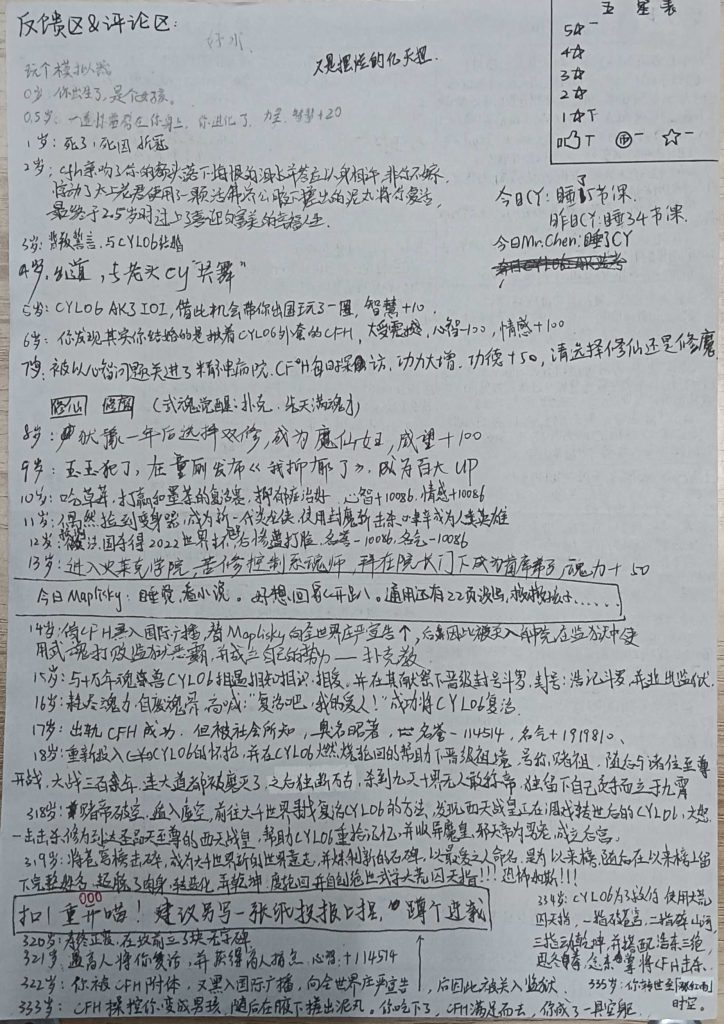 反馈区&评论区:
好水
又是摆烂的亿天捏.
玩个模拟人生
0岁: 你出生了, 是个女孩。
0.5岁: 一道惊雷劈在你身上, 你进化了. 力量, 智慧+20
1岁: 死了, 死因 折冠
2岁: cfh亲吻了你的额头落下悔恨的泪水并答应以身相许, 非你不嫁.
惊动了太上老君使用了一颗法
腋下搓出的泥丸将你复活,
最终于2.5岁时过上了幸福
3岁: 背叛誓言, 与CYL06结婚
4岁, 出道, 与老头 cy“共舞”
5岁: CYL06 AK了IOI, 借此机会带你出国玩了一圈, 智慧+10.
6岁: 你发现其实你结婚的是披着CYL06外套的CFH, 大受震撼, 心智-100, 情感+100
7岁: 被以心智问题关进了精神病院. CFH每日探访, 功力大增, 功德+50, 请选择修仙还是修魔
修仙 修魔 (武魂觉醒: 扑克. 先天满魂力)
8岁: 犹豫一年后选择双修, 成为魔仙女王, 威望+100
9岁: 玉玉犯了, 在童厕发布《我抑郁了》, 成为百大UP
10岁: 哈草莓, 打赢和墨茶的复活赛, 抑郁症治好, 心智+10086, 情感+10086
11岁: 偶然捡到变身器, 成为新一代类龙侠, 使用封魔斩击杀 成为人类英雄
12岁: 法国夺得2022世界杯, 后惨遭打脸, 名誉-10086, 名气-10086
13岁: 进入史莱克学院, 苦修控制系魂师, 拜在院长门下成为首席弟子, 魂力+50
今日Maplisky: 睡觉, 看小说. 好想回家(开趴). 通用还有22页没写, 救救孩子......
14岁: 借CFH黑入国际广播, 替Maplisky向全世界庄严宣告↑, 后因此被关入 在监狱中使
用武魂打败监狱恶霸, 并成立自己的势力——扑克教
15岁: 与十万年魂兽CYL06相遇相知相识, 相爱, 并在其献祭下晋级封号斗罗, 封号: 浩记斗罗, 并逃出监狱.
16岁: 耗尽魂力, 自废魂骨, 高喊: “复活吧, 我的爱人!”成功将CYL06复活.
17岁: 出轨CFH成功, 但被社会所知, 臭名昭著, 名誉-114514, 名气+1919810、
18岁: 重新投入CYL06的怀抱, 并在CYL06燃烧轮回的帮助下晋级祖境, 号称: 赌祖. 随后与诸位至尊
开战, 大战三百余年, 连大道都被磨灭了, 之后独断万古, 杀到九天十界无人敢称帝, 独留下自己负手而立于九霄
318岁: 赌帝破空, 踏入虚空, 前往大千世界寻找复活CYL06的方法, 发现西天战皇正在调戏转世后的CYL06, 大怒.
一击击杀修为到达圣品天至尊的西天战皇, 帮助CYL06重拾记忆, 并收异魔皇, 邪天帝为男宠, 成立后宫.
319岁: 将苍穹榜击碎, 成为大千世界新的世界意志, 并炼制新的石碑, 以最爱之人命名, 是为以来榜, 随后在以来榜上留
下完整姓名, 超脱了肉身, 转造化, 弄乾坤, 度轮回并自创绝世武学大荒囚天指!!! 恐怖如斯!!!
000
扣1重开喵! 建议另写一张纸投报上捏. 蹲个连载
320岁: 寿终正寝, 在坟前立了块无字碑
321岁: 遇高人将你复活, 并获得高人指点, 心智+114514
322岁: 你被CFH附体, 又黑入国际广播, 向全世界庄严宣告↑, 后因此被关入监狱.
333岁: CFH操控你变成男孩, 随后在腋下搓出泥丸. 你吃下了, CFH满足而去, 你成了一具空躯.
334岁: CYL06为了救你 使用大荒
囚天指, 一指破苍穹, 二指碎山河,
三指动乾坤, 并搭配浩东三绝,
将CFH击杀.
335岁: 你转世至「邪红雨」
时空.
五星表
5☆ 一
4☆
3☆
2☆
1☆ T
👍T 币一 ☆一
今日CY: 睡了5节课.
昨日CY: 睡34节课.
今日Mr.Chen: 睡了CY